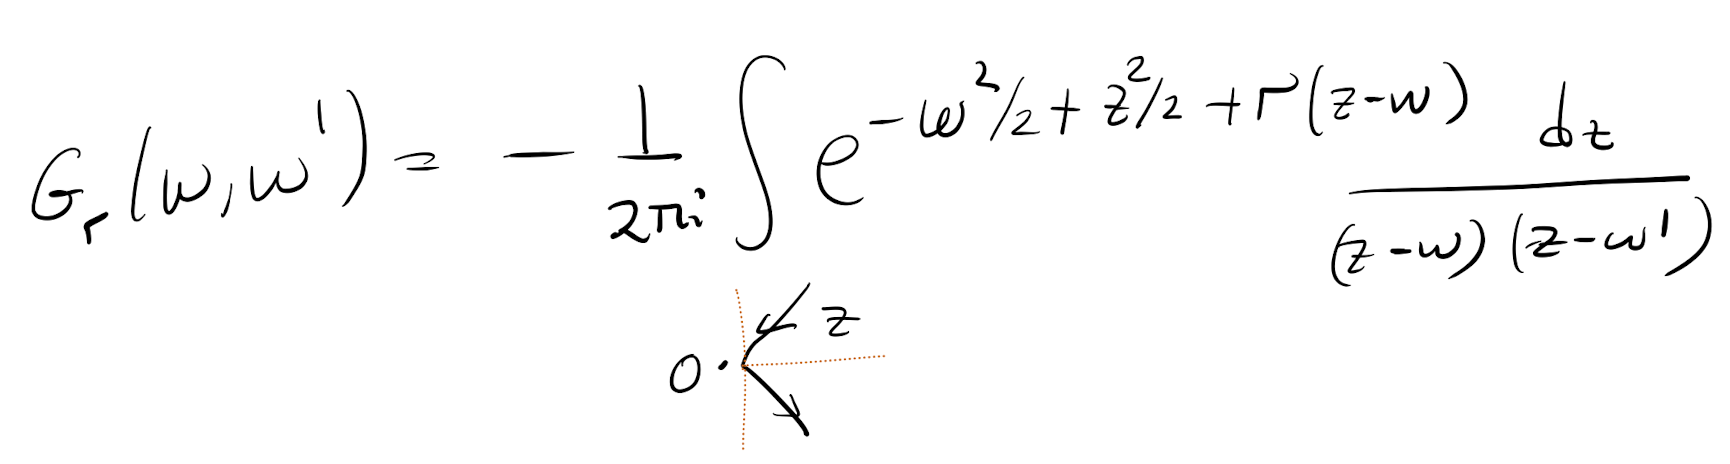 G_r(w,w') = - 1/2πi ∫ e^{-w^2/2 + z^2/2 + r(z-w)} dz/(z-w)(z-w')
0 z